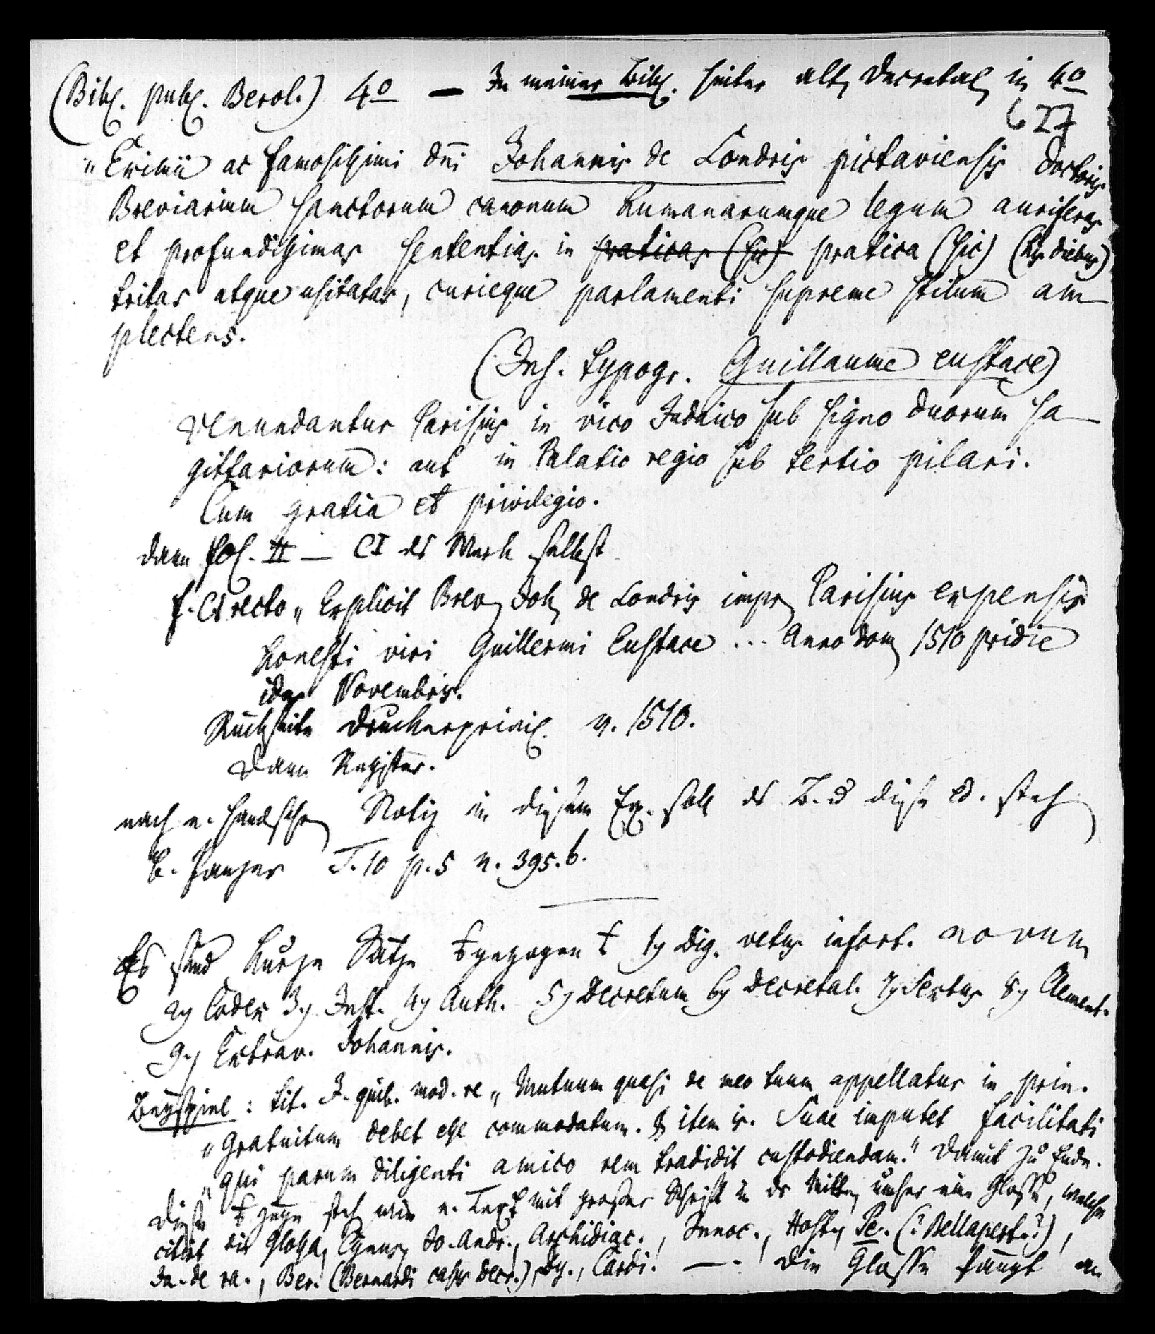 (Bibl. publ. Berol.) 4o — In meiner Bibl. hinter alt. Decretal. in 4o
627
"Eximii ac famosissimi dni Johannis de Londris pictaviensis doctoris
Breviarium sanctorum canonum humanarumque legum auriferas
et profundissimas sententias in praticas (sic) pratica (sic)
tritas atque usitatas, curieque parlamenti supreme stilum am-
plectens.
(Ins. typogr. Guillaume eustace)
venundantur Parisius in vico Iudaico sub signo duorum sa-
gittariorum: aut in Palatio regio sub tertio pilari.
Cum gratia et privilegio.
dann fol. II — CI das Werk selbst
f. CI recto "Explicit Brev. Joh. de Londris impr. Parisius expensis
honesti viri Guillermi Eustace ... Anno dom. 1510 pridie
idus Novembris.
Rückseite Druckerprivil. v. 1510.
Dann Register.
nach e. handschr. Notiz in diesem Ex. soll diese Ed. steh.
b. Panzer T. 10 p. 5 n. 395.b.
Es sind kurze Sätze gezogen 1) Dig. vetus infort. novum
2) Codex 3) Inst. 4) Auth. 5) Decretum 6) Decretal. 7) Sextus 8) Clement.
9) Extrav. Johannis.
Beyspiel: tit. I. quib. mod. re "Mutuum quasi de meo tuum appellatur in prin.
"Gratuitum debet esse commodatum. § item is. Suae imputet facilitati
"qui parum diligenti amico rem tradidit custodiendam." Damit zu Ende.
Diese steh. wie e. Text mit großer Schrift in der Mitte, umher eine Glosse, welche
citirt die Glossa, Cynus, Jo. Andr., Archidiac., Innoc., Host., Pe. (? Bellapert.?),
In. de ra., Ber. (Bernardi casus decr.), Dy., Cardi. — . Die Glosse fängt an